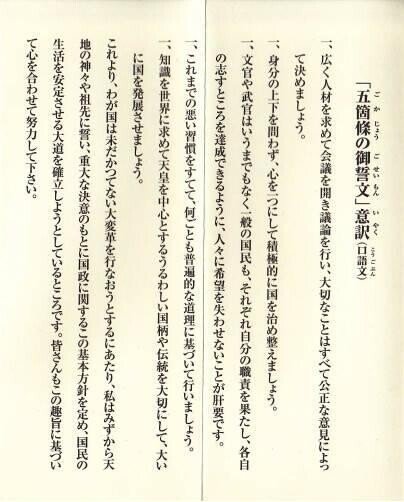 「五箇條の御誓文」意訳(口語文)
ごかじょう ごせいもん いやく こうごぶん
一、広く人材を求めて会議を開き議論を行い、大切なことはすべて公正な意見によっ
て決めましょう。
一、身分の上下を問わず、心を一つにして積極的に国を治め整えましょう。
一、文官や武官はいうまでもなく一般の国民も、それぞれ自分の職責を果たし、各自
の志すところを達成できるように、人々に希望を失わせないことが肝要です。
一、これまでの悪い習慣をすてて、何ごとも普遍的な道理に基づいて行いましょう。
一、知識を世界に求めて天皇を中心とするうるわしい国柄や伝統を大切にして、大い
に国を発展させましょう。
これより、わが国は未だかつてない大変革を行なおうとするにあたり、私はみずから天
地の神々や祖先に誓い、重大な決意のもとに国政に関するこの基本方針を定め、国民の
生活を安定させる大道を確立しようとしているところです。皆さんもこの趣旨に基づい
て心を合わせて努力して下さい。